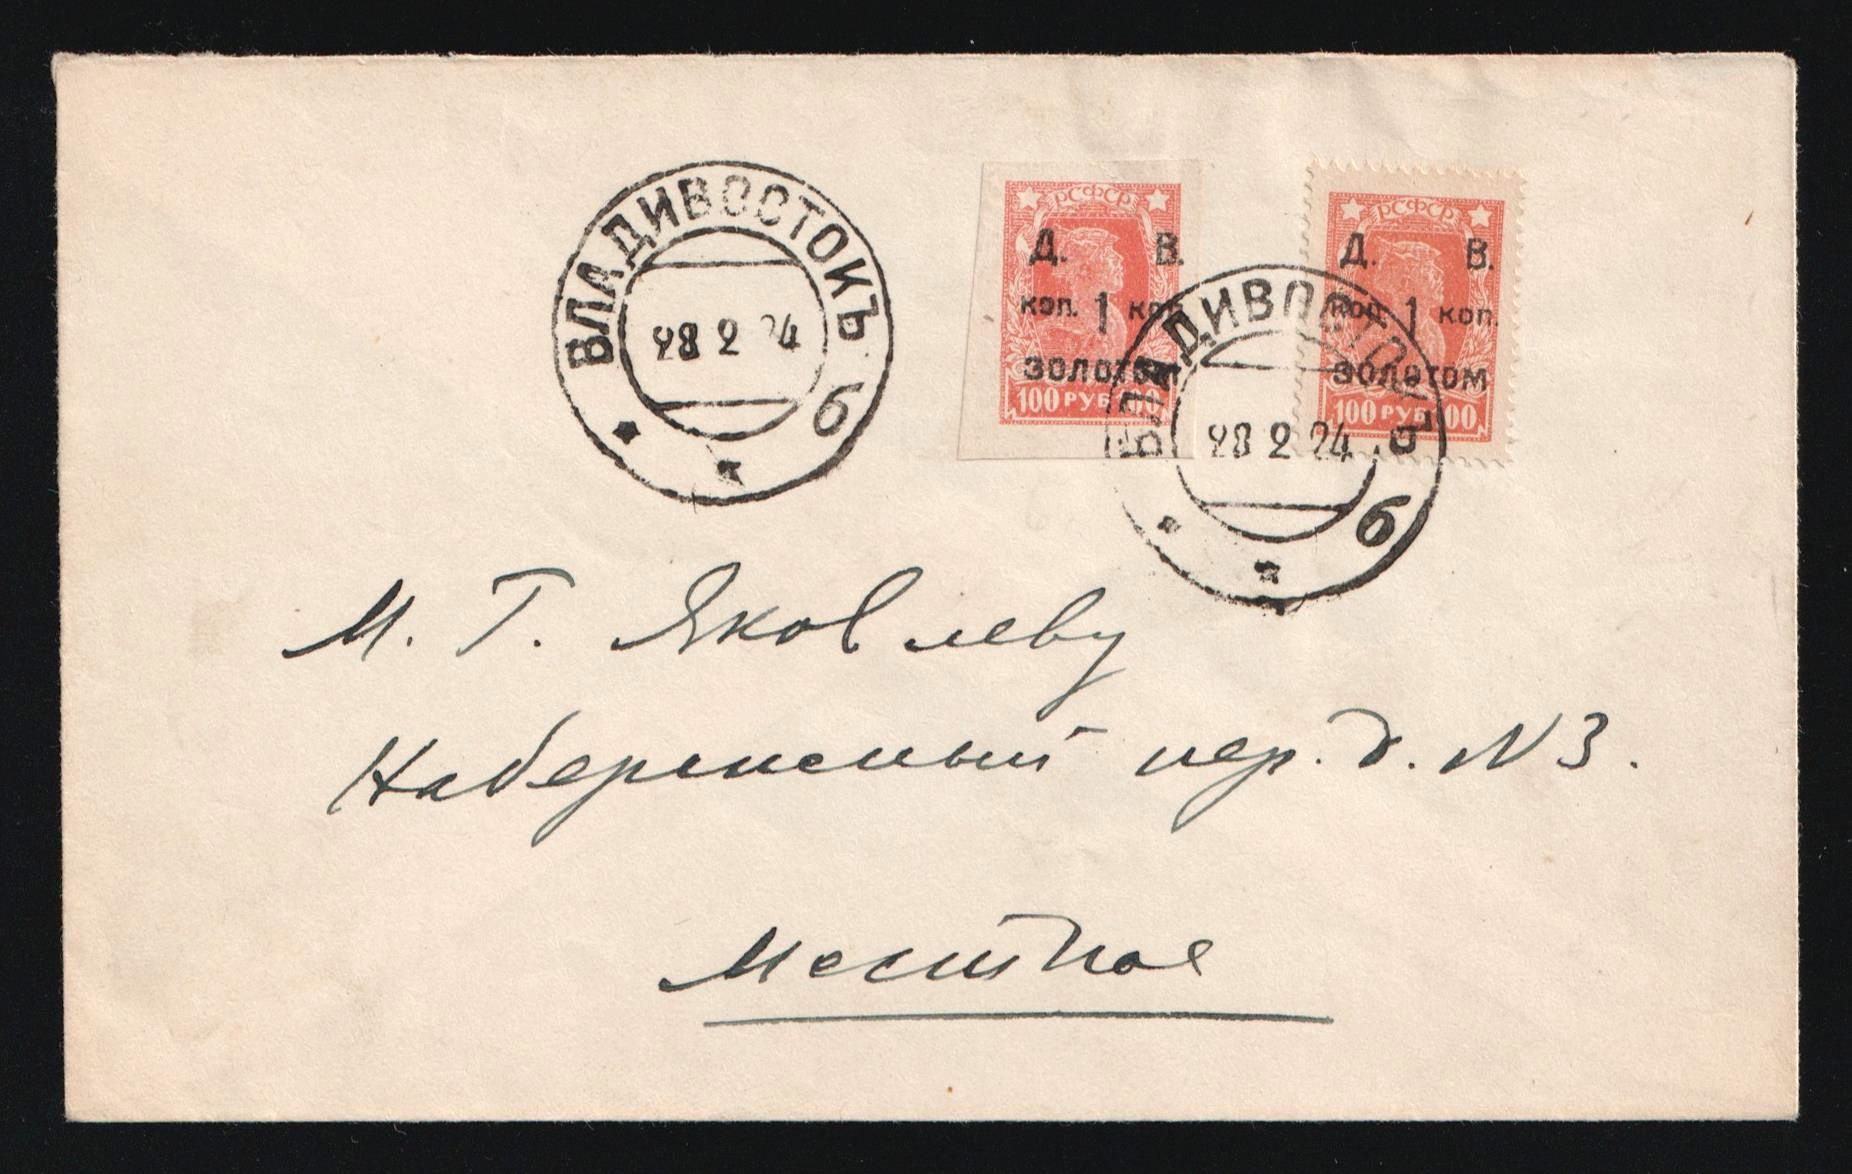 ВЛАДИВОСТОКЪ
28 2 24
б
РСФСР
Д. В.
коп. 1 коп.
золотом
100 РУБ 00
РСФСР
Д. В.
коп. 1 коп.
золотом
100 РУБ 00
ВЛАДИВОСТОКЪ
28 2 24
б
М. Т. Яковлеву
Набережный пер. д. N 3.
Местное